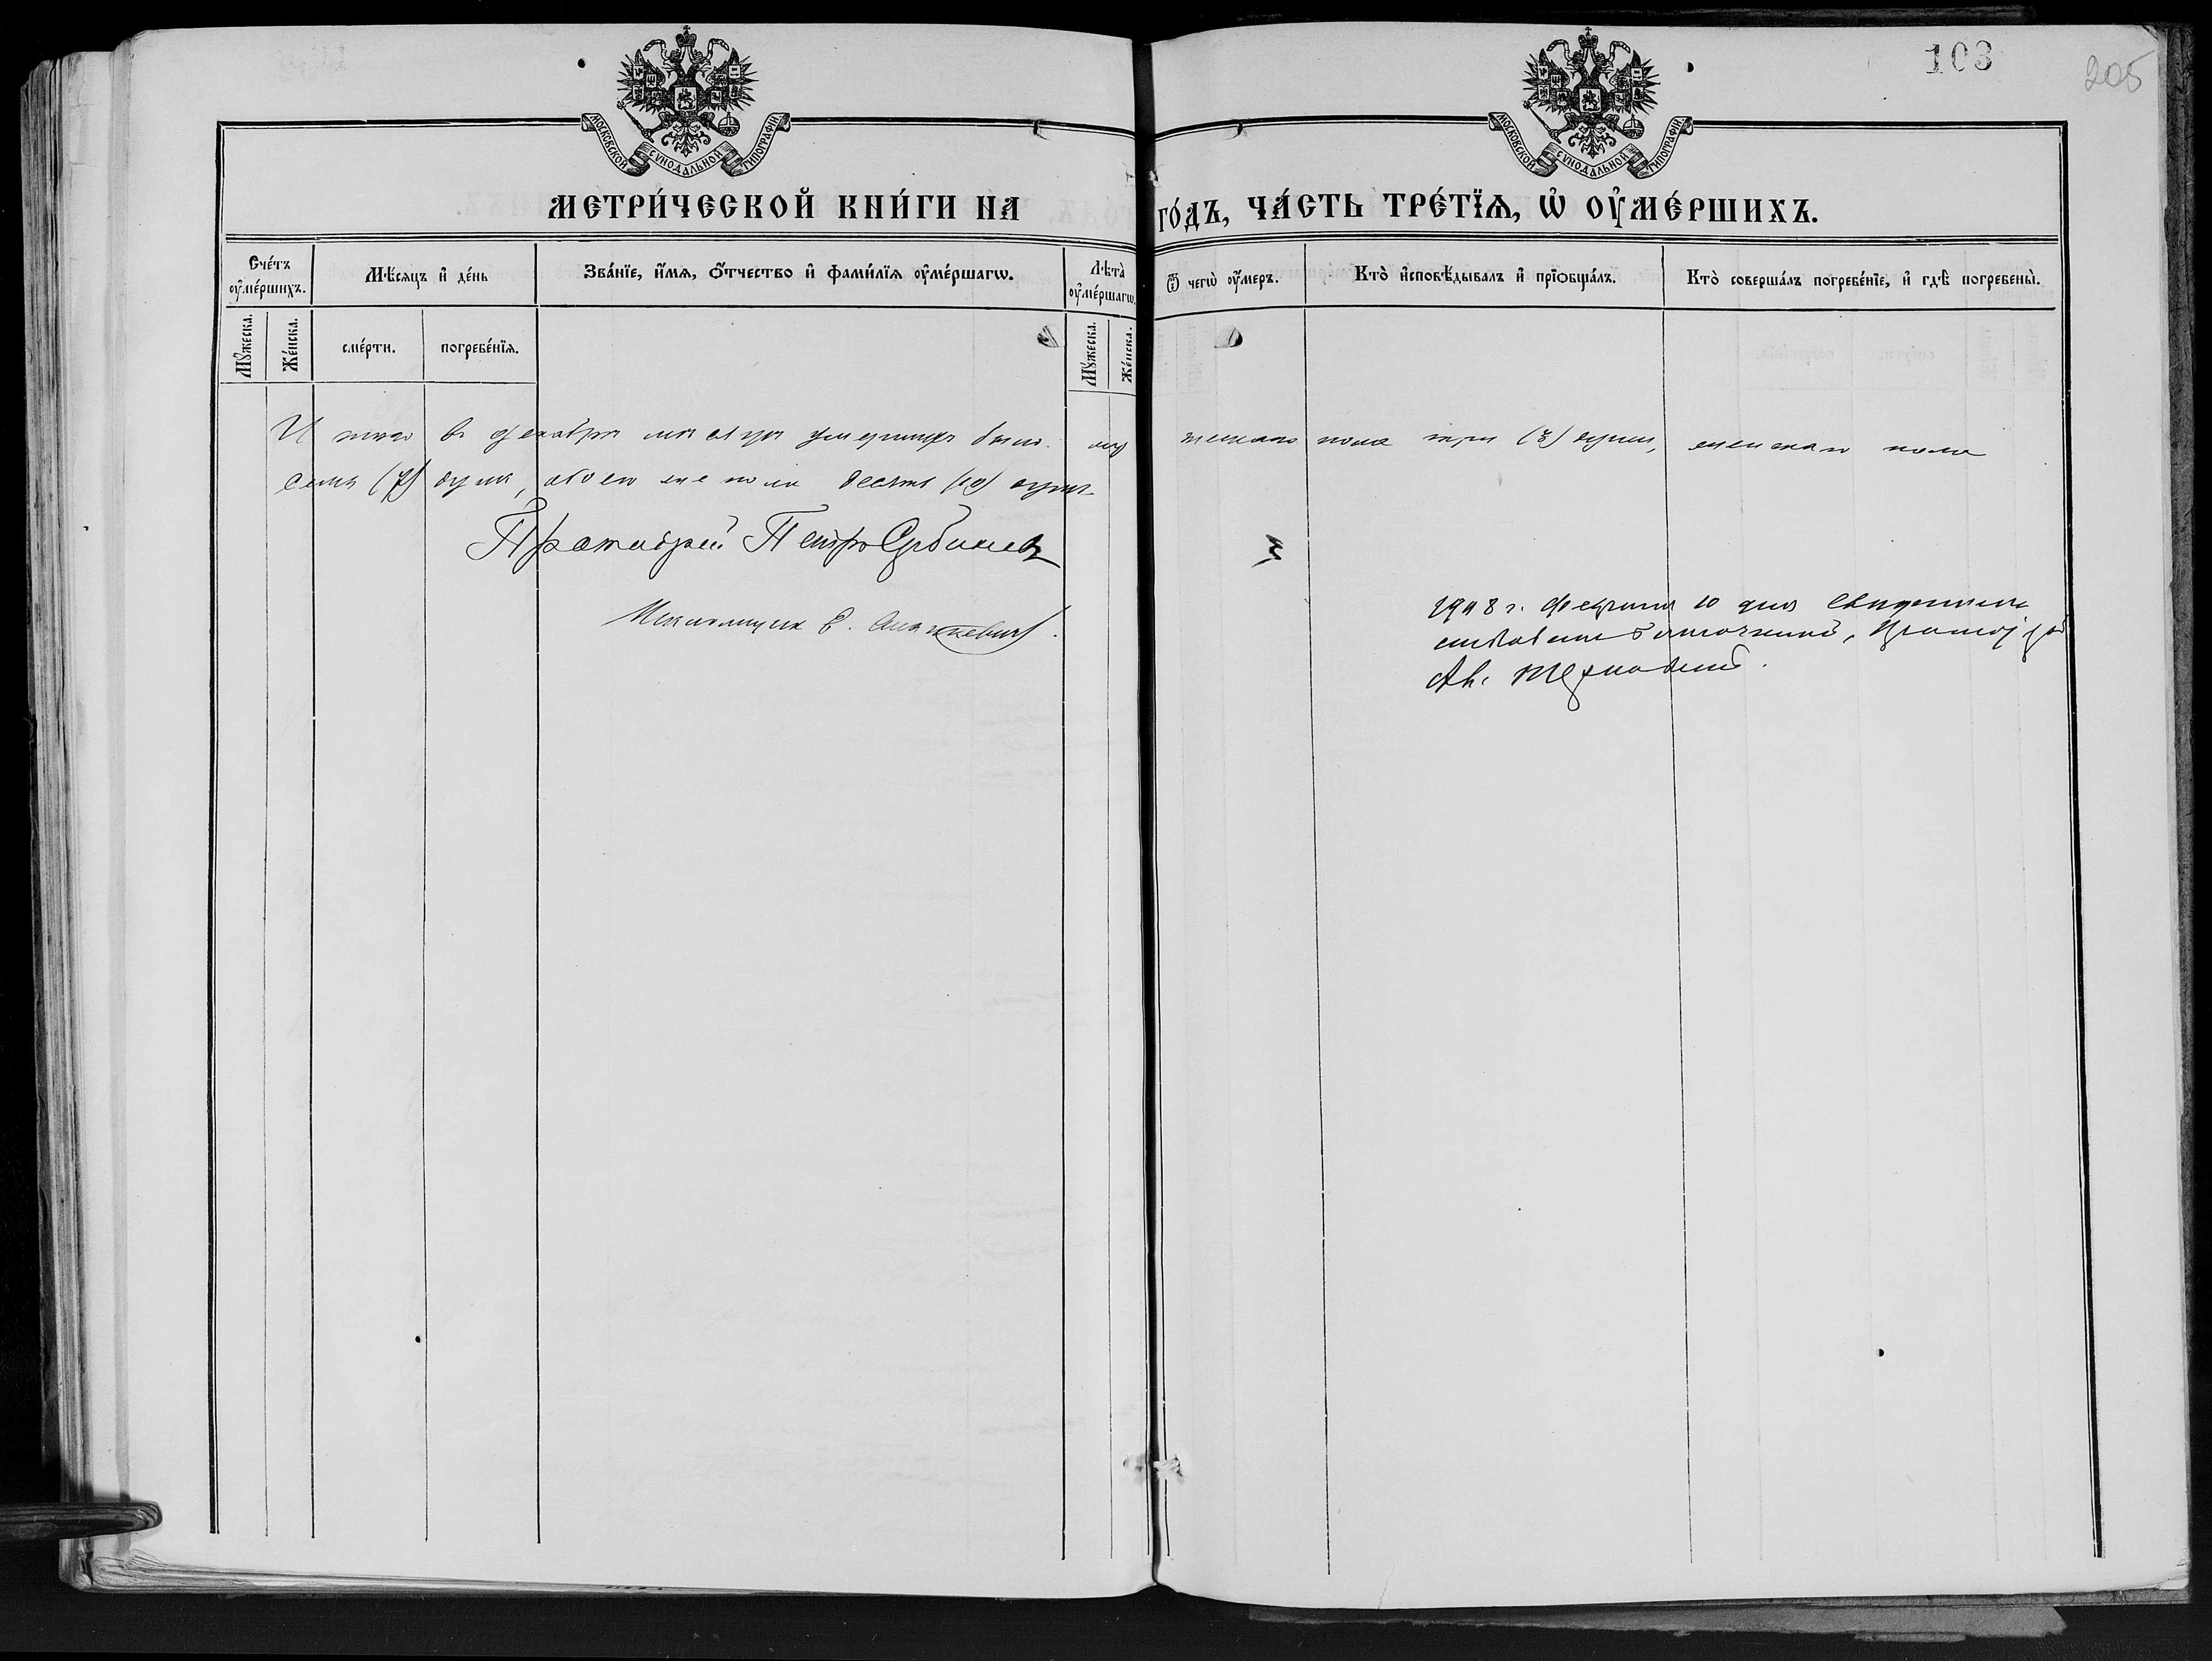 103
205
МОСКОВСКОЙ СѴНОДАЛЬНОЙ ТИПОГРАФІИ
МОСКОВСКОЙ СѴНОДАЛЬНОЙ ТИПОГРАФІИ
МЕТРИ́ЧЕСКОЙ КНИ́ГИ НА ГО́ДЪ, ЧА́СТЬ ТРЕ́ТЇѦ, Ѡ҆ ОУ҆МЕ́РШИХЪ.
Сче́тъ оу҆ме́ршихъ.
Мѣ́сяцъ и҆ де́нь
Зва́нїе, и҆́мѧ, ѻ҆́тчество и҆ фами́лїѧ оу҆ме́ршагѡ.
Лѣта̀ оу҆ме́ршагѡ.
Ѿ чегѡ̀ оу҆́меръ.
Кто̀ и҆сповѣ́дывалъ и҆ прїѻбща́лъ.
Кто̀ соверша́лъ погребе́нїе, и҆ гдѣ̀ погребены̀.
Мꙋ́жеска.
Же́нска.
сме́рти.
погребе́нїѧ.
Мꙋ́жеска.
Же́нска.
Итого въ декабрѣ мѣсяцѣ умершихъ было: мужескаго пола три (3) души, женскаго пола
семь (7) душъ, обоего же пола десять (10) душъ
Протоіерей Петръ
Псаломщикъ Е.
1908 г. февраля 10 дня
благочинный, Протоіерей